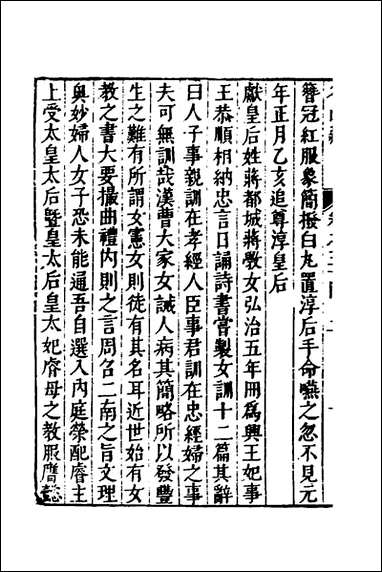 簪冠紅服象簡撥白丸置淳后手命嚥之忽不見元
年正月乙亥追尊淳皇后
獻皇后姓蔣都城蔣斆女弘治五年冊爲興王妃事
王恭順相納忠言日誦詩書嘗製女訓十二篇其辭
曰人子事親訓在孝經人臣事君訓在忠經婦之事
夫可無訓哉漢曹大家女誡人病其簡略所以發豐
生之難有所謂女憲女則徒有其名耳近世始有女
教之書大要撮曲禮內則之言周召二南之旨文理
奥妙婦人女子悉未能通吾自選入內庭榮配睿主
上受太皇太后曁皇太后皇太妃睿母之教服膺